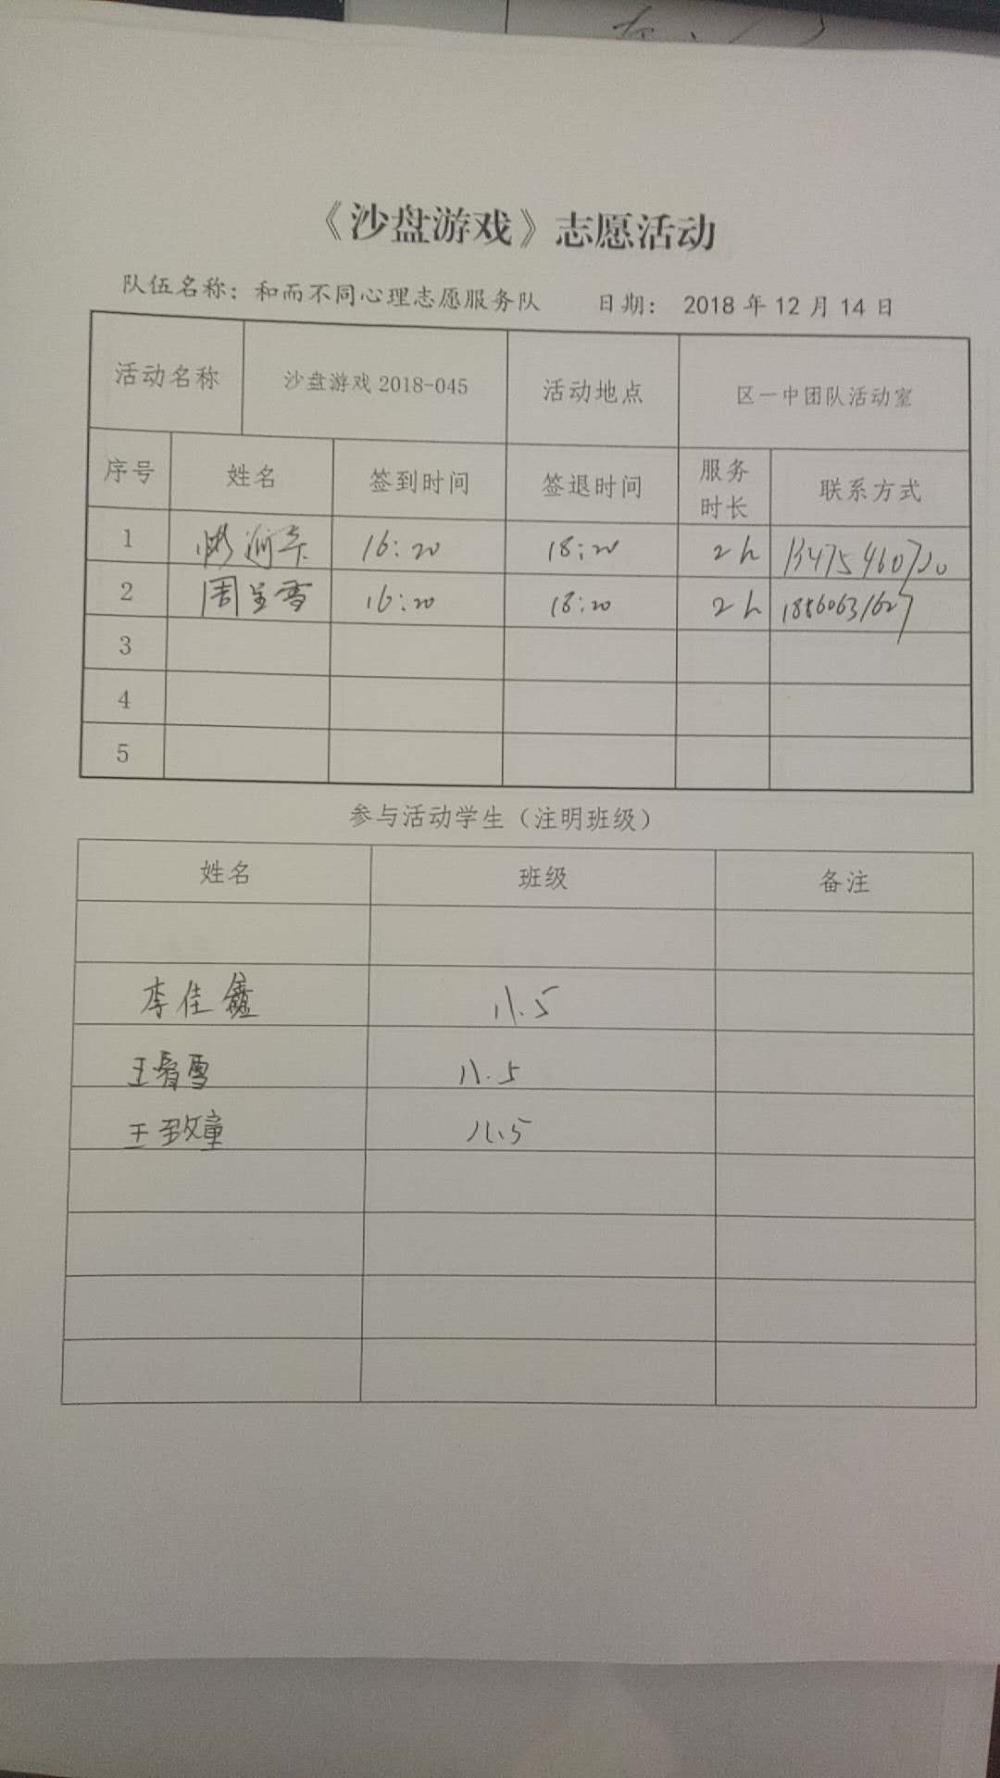 《沙盘游戏》志愿活动
队伍名称：和而不同心理志愿服务队 日期： 2018 年 12 月 14 日
活动名称 沙盘游戏 2018-045 活动地点 区一中团队活动室
序号 姓名 签到时间 签退时间 服务时长 联系方式
1 16:20 18:20 2h
2 16:20 18:20 2h 18860631627
3
4
5
参与活动学生（注明班级）
姓名 班级 备注
李佳鑫 八.5
王 雪 八.5
王 童 八.5